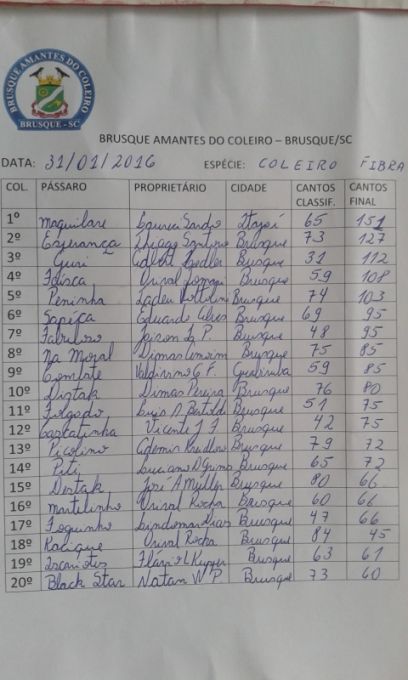 BRUSQUE AMANTES DO COLEIRO
BRUSQUE - SC
BRUSQUE AMANTES DO COLEIRO – BRUSQUE/SC
DATA: 31/01/2016 ESPÉCIE: COLEIRO FIBRA
COL. PÁSSARO PROPRIETÁRIO CIDADE CANTOS CLASSIF. CANTOS FINAL
1º Maquilare Itajaí 65 151
2º Esperança Thiago Brusque 73 127
3º Guri Brusque 31 112
4º Faísca Orival 59 108
5º Peninha Brusque 74 103
6º Sapeca Eduardo Brusque 69 95
7º Fabuloso P. Brusque 48 95
8º Na Moral Dismas Brusque 75 85
9º Valdirimo G F. Guabiruba 59 85
10º Dismas Pereira Brusque 76 80
11º Folgado Brusque 51 75
12º Cascatinha Vicente Brusque 42 75
13º Picolino Brusque 79 72
14º Luciano Brusque 65 72
15º Destak José A Müller Brusque 80 66
16º Martelinho Orival Rocha Brusque 60 66
17º Foguinho Brusque 47 66
18º Kacique Orival Rocha Brusque 84 45
19º Flávio L Brusque 63 61
20º Black Star Natan W P Brusque 73 60